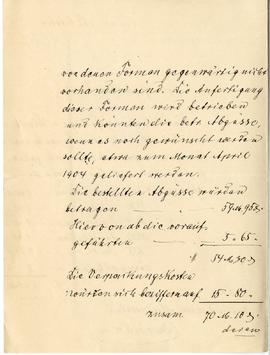 von denen Formen gegenwärtig nicht
vorhanden sind. Die Anfertigung
dieser Formen wird betrieben
und könnten die betr. Abgüsse,
wenn es noch gewünscht werden
sollte, etwa zum Monat April
1904 geliefert werden.
Die bestellten Abgüsse würden
betragen
Hiervon ab die vorauf-
geführten 3-65-
Die Verpackungskosten
würden sich beziffern auf 15-80-
zusam. 70